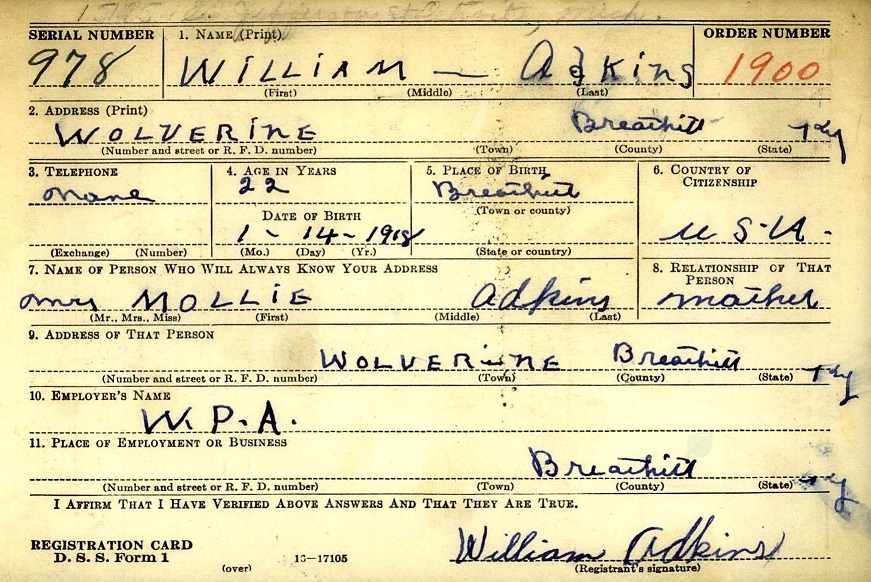 SERIAL NUMBER 1. NAME (Print) ORDER NUMBER
978 WILLIAM — Adkins 1900
(First) (Middle) (Last)
2. ADDRESS (Print)
WOLVERINE Breathitt Ky
(Number and street or R. F. D. number) (Town) (County) (State)
3. TELEPHONE 4. AGE IN YEARS 5. PLACE OF BIRTH 6. COUNTRY OF CITIZENSHIP
None 22 Breathitt
DATE OF BIRTH (Town or county)
1 - 14 - 1918 U S. A.
(Exchange) (Number) (Mo.) (Day) (Yr.) (State or country)
7. NAME OF PERSON WHO WILL ALWAYS KNOW YOUR ADDRESS 8. RELATIONSHIP OF THAT PERSON
Mrs MOLLIE Adkins Mother
(Mr., Mrs., Miss) (First) (Middle) (Last)
9. ADDRESS OF THAT PERSON
WOLVERINE Breathitt Ky
(Number and street or R. F. D. number) (Town) (County) (State)
10. EMPLOYER'S NAME
W. P. A.
11. PLACE OF EMPLOYMENT OR BUSINESS
Breathitt Ky
(Number and street or R. F. D. number) (Town) (County) (State)
I AFFIRM THAT I HAVE VERIFIED ABOVE ANSWERS AND THAT THEY ARE TRUE.
REGISTRATION CARD William Adkins
D. S. S. Form 1 (over) 16-17105 (Registrant's signature)